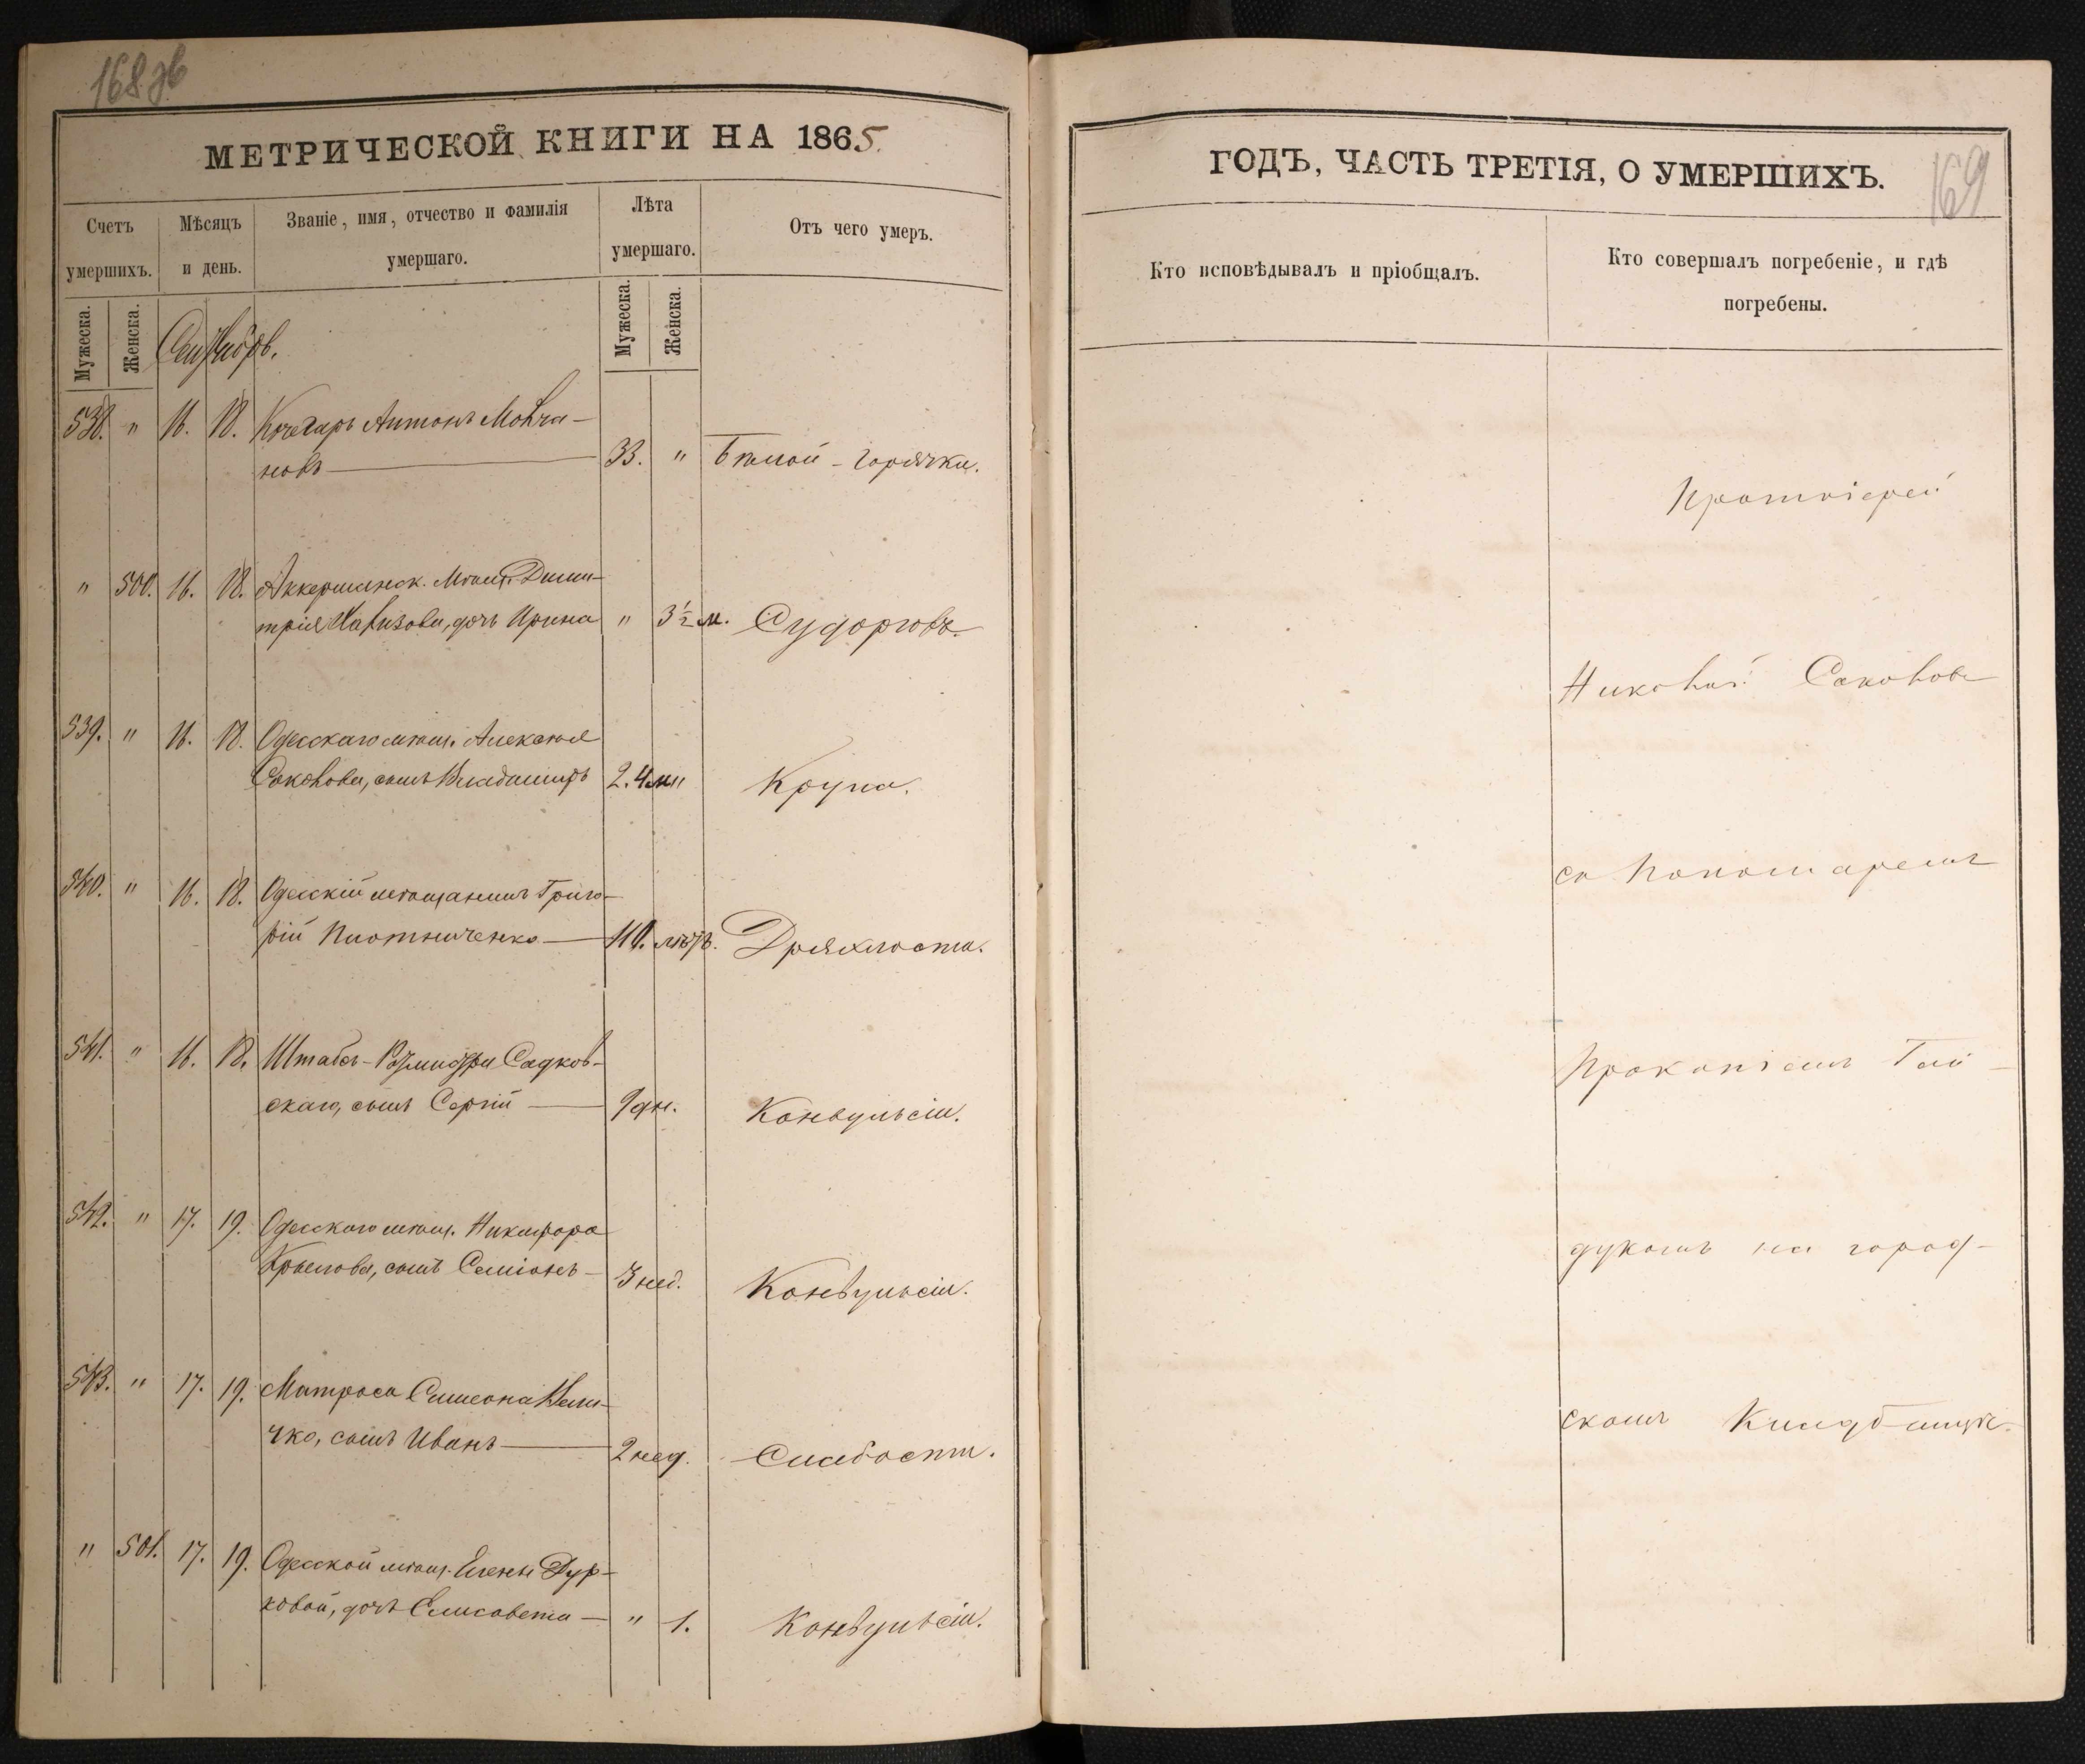 168 зв
МЕТРИЧЕСКОЙ КНИГИ НА 1865.
Счетъ умершихъ.
Мѣсяцъ и день.
Званіе, имя, отчество и фамилія умершаго.
Лѣта умершаго.
Отъ чего умеръ.
Мужеска.
Женска.
Мужеска.
Женска.
Сентябрь.
538. " 16. 18. Кочегаръ Антонъ Молча-
новъ 33. " Бѣлой-горячки.
" 500. 16. 18. Аккерманск. мѣщ. Дими-
трія дочь Ирина " 3½ м. Судорговъ.
539. " 16. 18. Одесскаго мѣщ. Алексѣя
Соколова, сынъ Владимиръ 2. 4 м. " Крупа.
540. " 16. 18. Одесскій мѣщанинъ Григо-
рій Плотниченко 110. лѣтъ. Дряхлости.
541. " 16. 18. Штабсъ-Ротмистра Садков-
скаго, сынъ Сергій 9 дн. Конвульсіи.
542. " 17. 19. Одесскаго мѣщ. Никифора
Крылова, сынъ Симеонъ 3 нед. Конвульсіи.
543. " 17. 19. Матроса Симеона Вели-
чко, сынъ Иванъ 2 нед. Слабости.
" 501. 17. 19. Одесской мѣщ. Елены Дур-
ковой, дочь Елисавета " 1. Конвульсіи.
169
ГОДЪ, ЧАСТЬ ТРЕТІЯ, О УМЕРШИХЪ.
Кто исповѣдывалъ и пріобщалъ.
Кто совершалъ погребеніе, и гдѣ
погребены.
Протоіерей
Николай Соколовъ
съ Пономаремъ
Прокопіемъ Гай-
дукомъ на город-
скомъ Кладбищѣ.